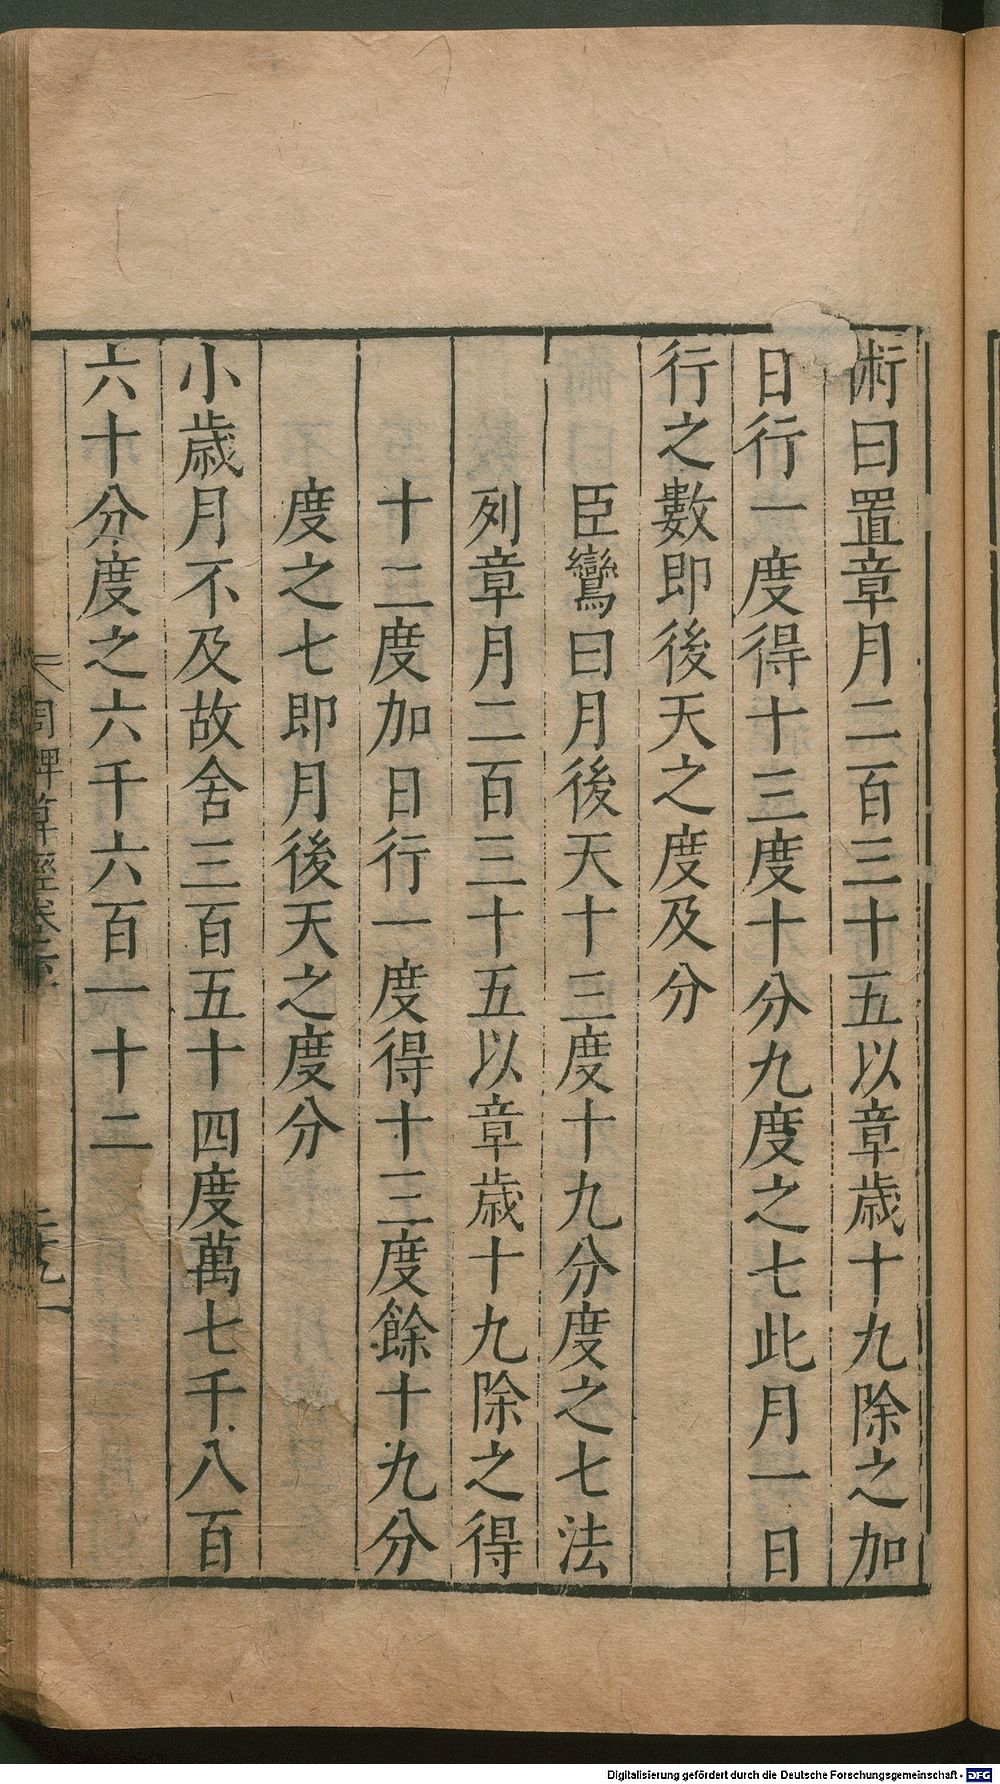 術曰置章月二百三十五以章歳十九除之加
日行一度得十三度十分九度之七此月一日
行之數即後天之度及分
臣鸞曰月後天十三度十九分度之七法
列章月二百三十五以章歳十九除之得
十二度加日行一度得十三度餘十九分
度之七即月後天之度分
小歳月不及故舍三百五十四度萬七千八百
六十分度之六千六百一十二
周髀算經卷
Digitalisierung gefördert durch die Deutsche Forschungsgemeinschaft - DFG